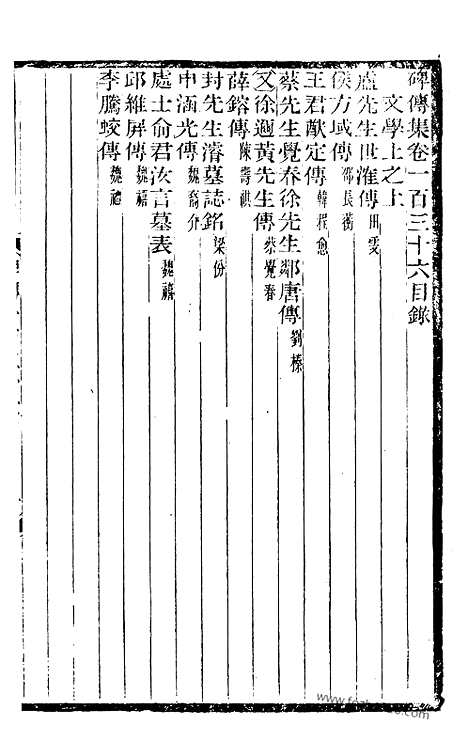 碑傳集卷一百三十六目錄
文學上之上
盧先生世㴶傳 田雯
侯方域傳 邵長蘅
王君猷定傳 韓程愈
蔡先生覺春徐先生鄰唐傳 劉榛
又徐邇黃先生傳 蔡覺春
薛鎔傳 陳壽祺
封先生濬墓誌銘 梁份
申涵光傳 魏裔介
處士俞君汝言墓表 魏禧
邱維屏傳 魏禧
李騰蛟傳 魏禧